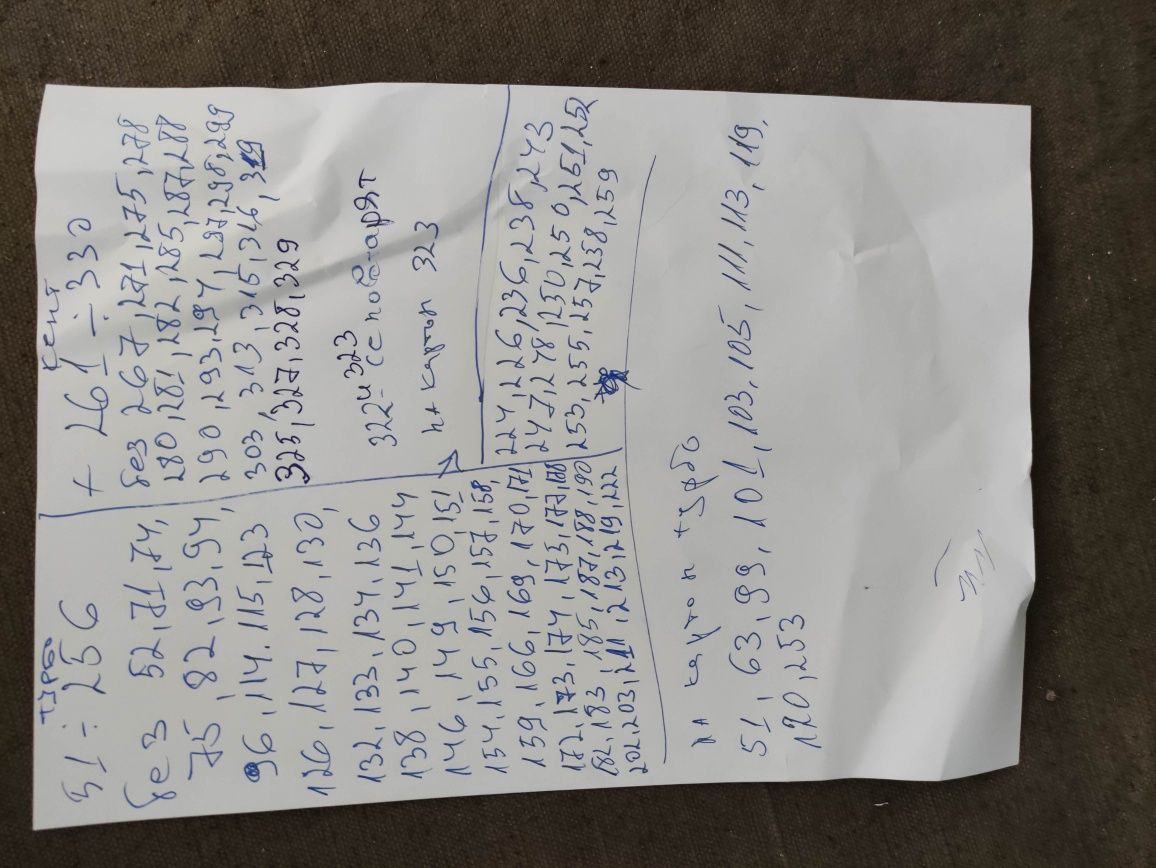 турбо
51 ÷ 256
без 52,71,74,
75,82,93,94,
96,114.115,123
126,127,128,130,
132,133,134,136
138,140,141,144
146,149,150,151
154,155,156,157,158,
159,166,169,170,171
172,173,174,173,177,188
182,183,185,187,188,190
202,203,211,213,219,222
кент
+ 261 ÷ 330
без 267,271,275,278
280,281,282,285,287,288
290,293,294,297,298,299
303,313,315,316,319
325,327,328,329
322 и 323 - се повтарят
на картон 323
224,226,236,238,243
247,248,250,250,251,252
253,255,257,258,259
на картон турбо
51,63,99,101,103,105,111,113,119,
120,253